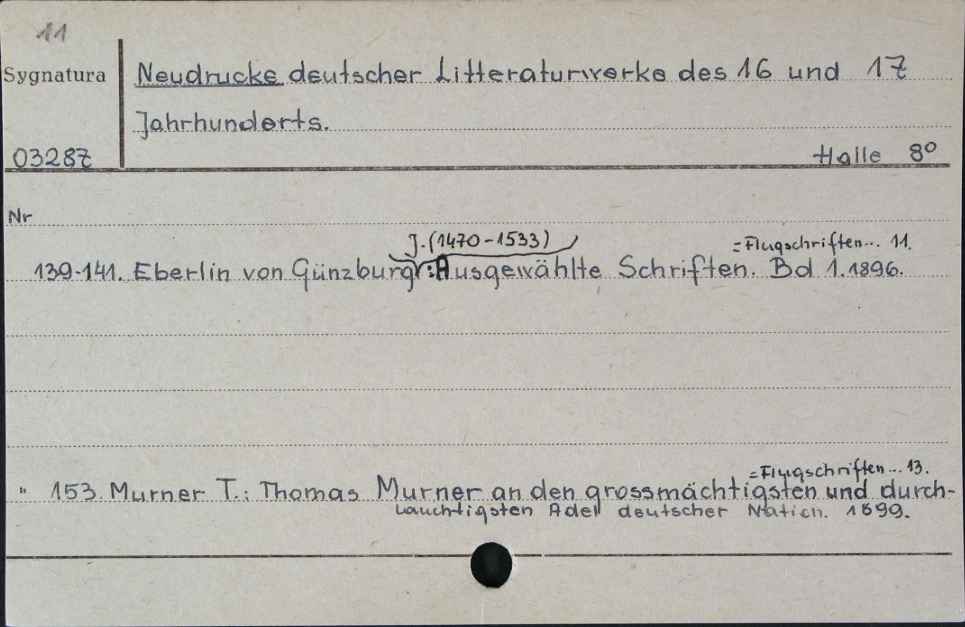 11
Sygnatura
Neudrucke deutscher Litteraturwerke des 16 und 17
Jahrhunderts.
03287
Halle 8°
Nr
J. (1470-1533)
=Flugschriften... 11.
139-141. Eberlin von Günzburg: Ausgewählte Schriften. Bd 1. 1896.
=Flugschriften... 13.
" 153. Murner T.: Thomas Murner an den grossmächtigsten und durch-
lauchtigsten Adel deutscher Nation. 1899.